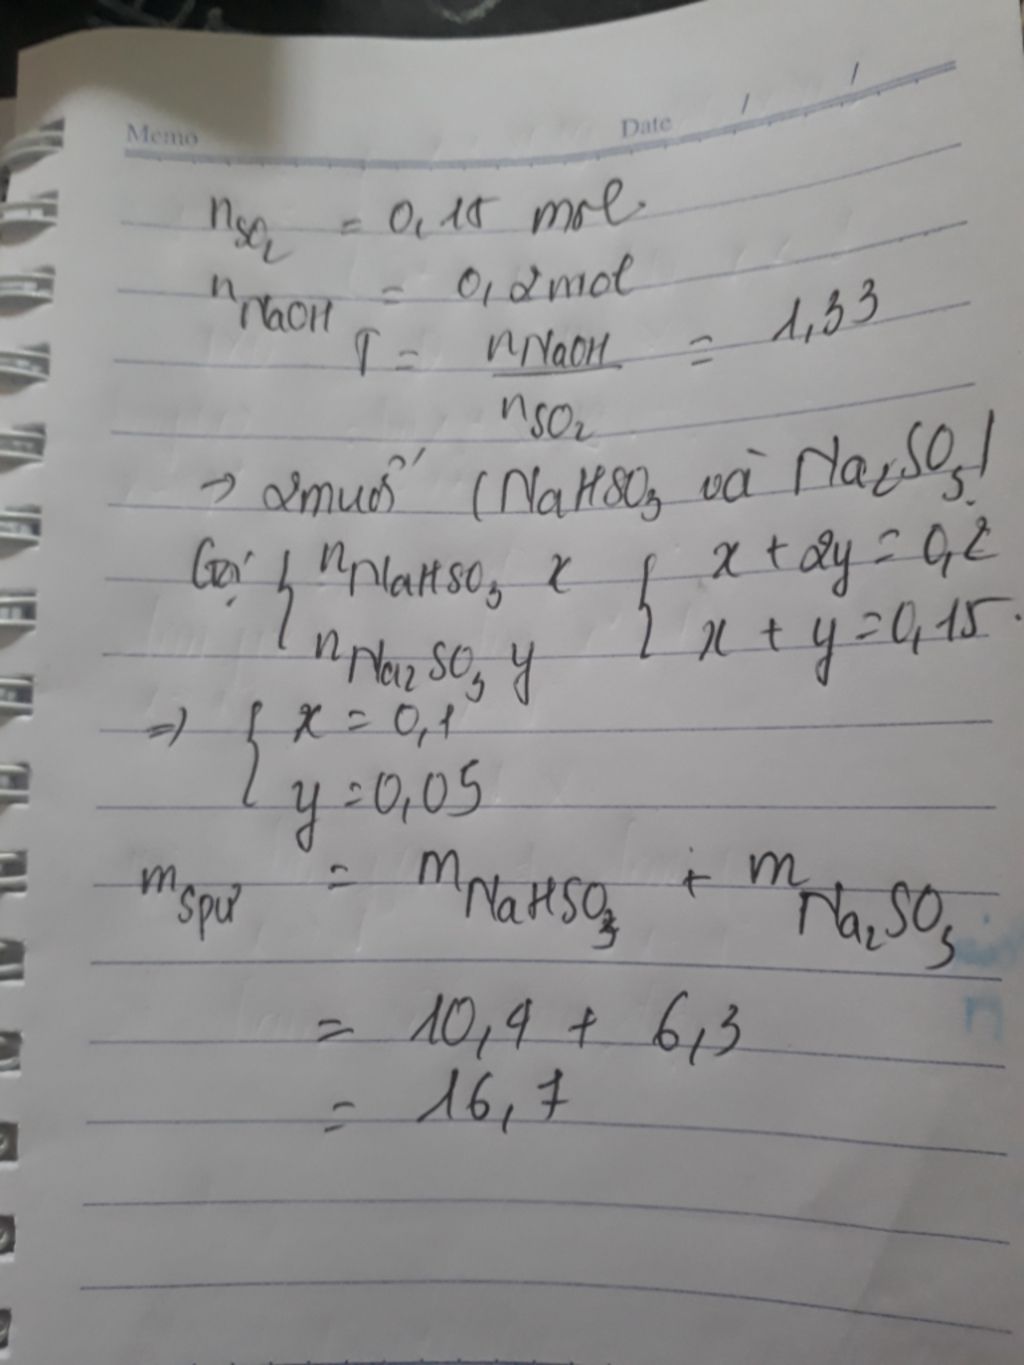 Memo Date / /
nSO2 = 0,15 mol.
nNaOH = 0,2mol
T = nNaOH / nSO2 = 1,33
→ 2muối (NaHSO3 và Na2SO3)
Gọi { nNaHSO3 x { x + 2y = 0,2
nNa2SO3 y x + y = 0,15.
=> { x = 0,1
y = 0,05
mspư = mNaHSO3 + mNa2SO3
= 10,4 + 6,3
= 16,7